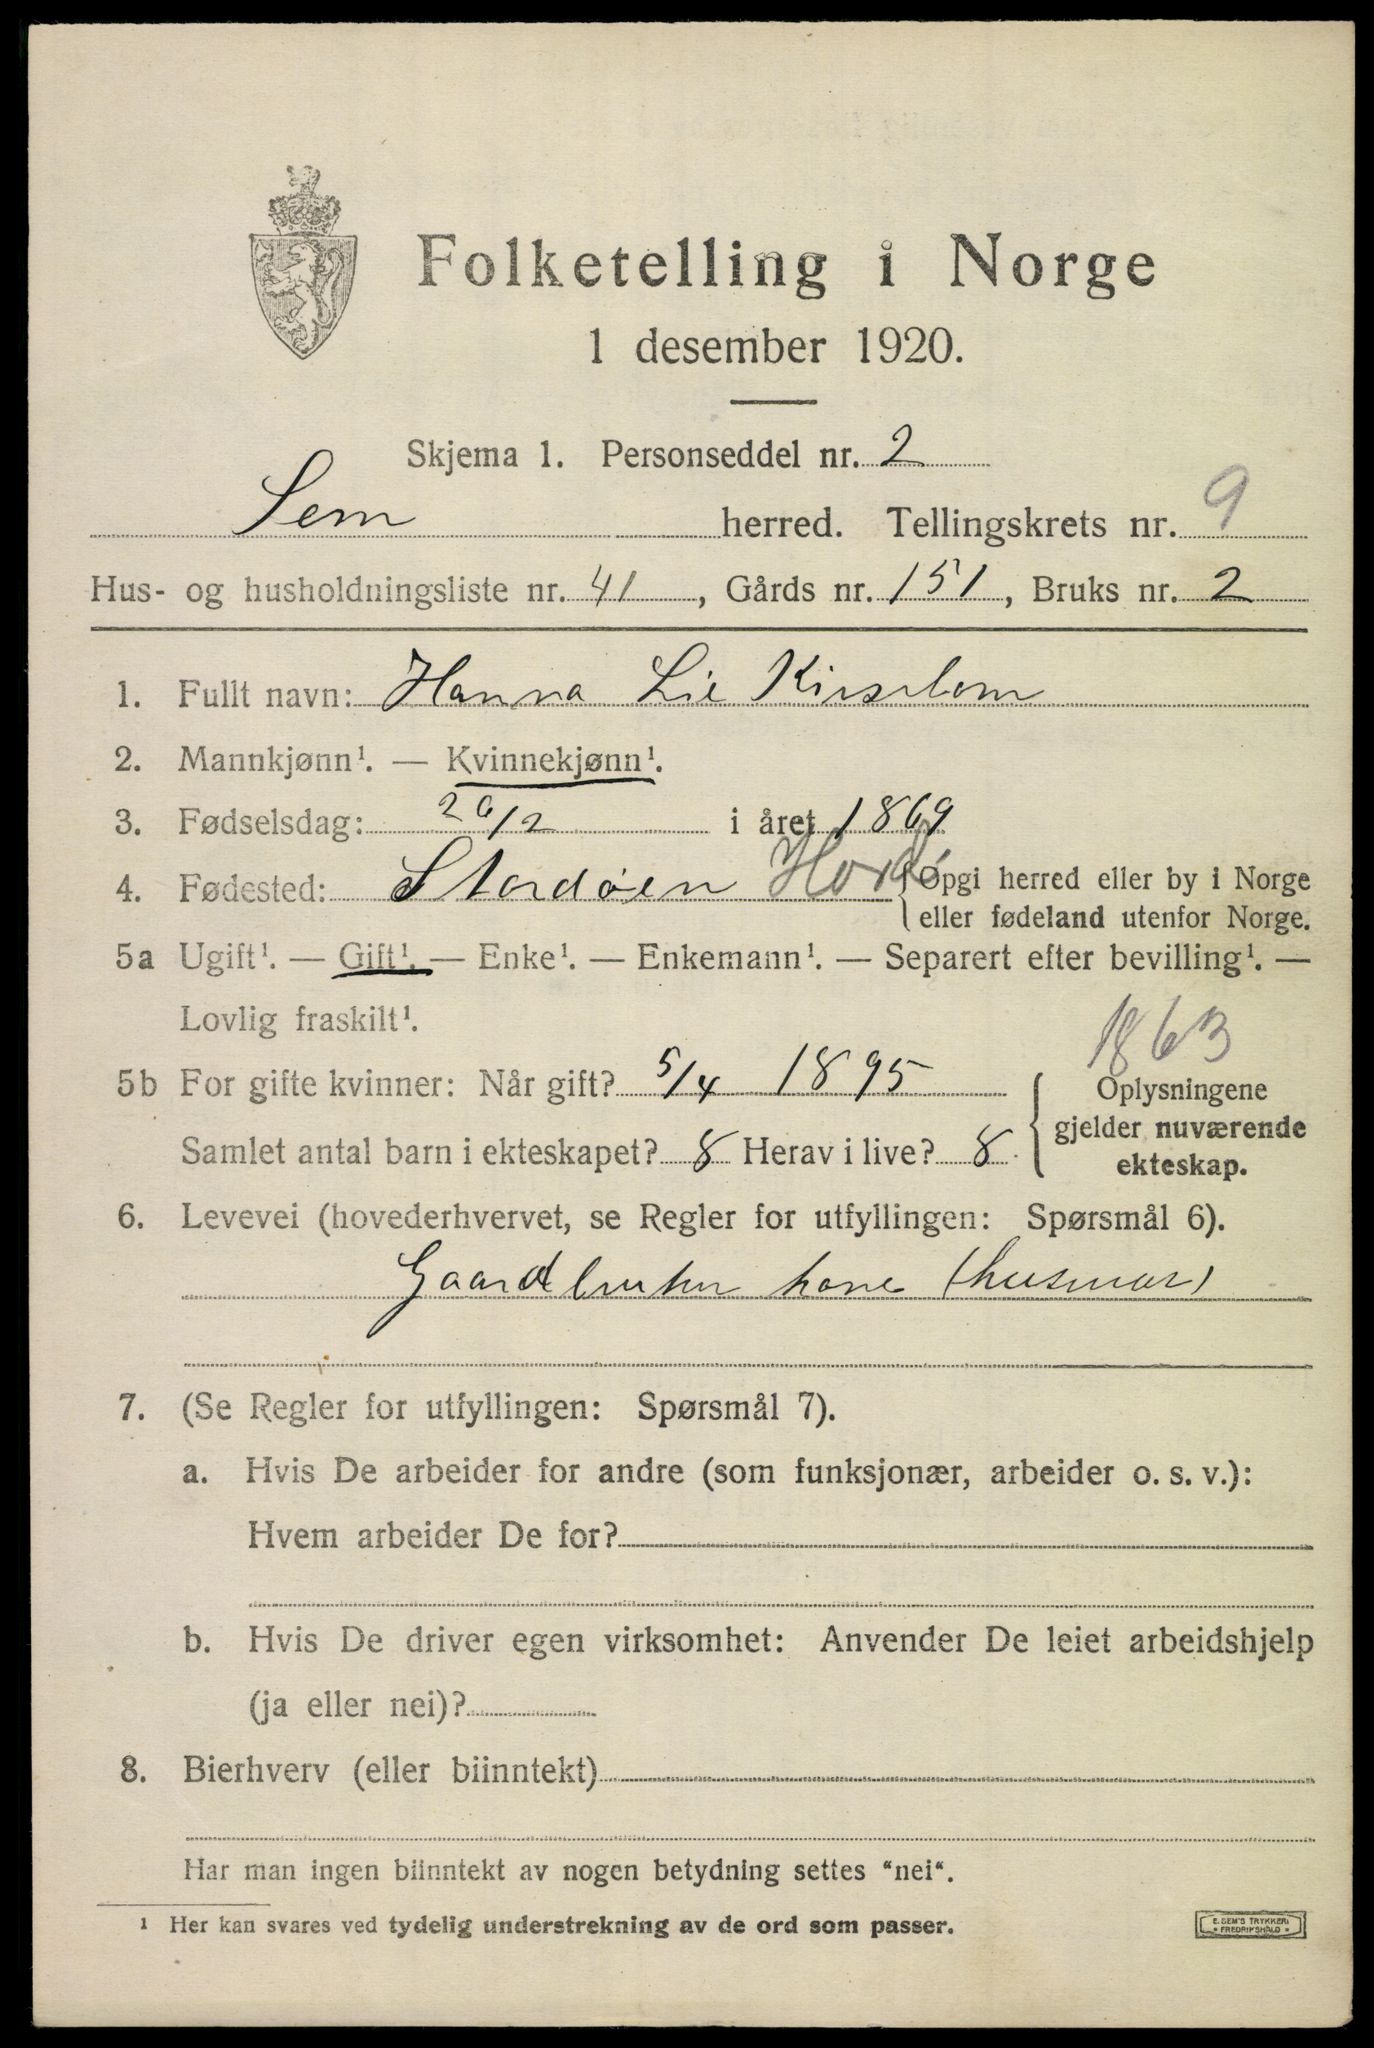 Folketelling i Norge
1 desember 1920.
Skjema 1. Personseddel nr. 2
Sem herred. Tellingskrets nr. 9
Hus- og husholdningsliste nr. 41, Gårds nr. 151, Bruks nr. 2
1. Fullt navn: Hanna Lie
2. Mannkjønn¹. — Kvinnekjønn¹.
3. Fødselsdag: 26/2 i året 1869
4. Fødested: Stordøen Hord {Opgi herred eller by i Norge
eller fødeland utenfor Norge.
5a Ugift¹. — Gift¹. — Enke¹. — Enkemann¹. — Separert efter bevilling¹. —
Lovlig fraskilt¹.
1863
5b For gifte kvinner: Når gift? 5/4 1895 Oplysningene
gjelder nuværende
Samlet antal barn i ekteskapet? 8 Herav i live? 8 ekteskap.
6. Levevei (hovederhvervet, se Regler for utfyllingen: Spørsmål 6).
Gaardbruker kone (husmor)
7. (Se Regler for utfyllingen: Spørsmål 7).
a. Hvis De arbeider for andre (som funksjonær, arbeider o. s. v.):
Hvem arbeider De for?
b. Hvis De driver egen virksomhet: Anvender De leiet arbeidshjelp
(ja eller nei)?
8. Bierhverv (eller biinntekt)
Har man ingen biinntekt av nogen betydning settes "nei".
1 Her kan svares ved tydelig understrekning av de ord som passer.
E. SEM'S TRYKKERI
FREDRIKSHALD